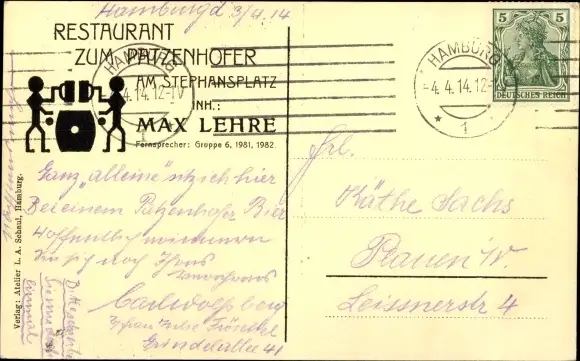 Hamburg d 3/4.14
RESTAURANT
ZUM PATZENHOFER
AM STEPHANSPLATZ
INH.:
MAX LEHRE
Fernsprecher: Gruppe 6, 1981, 1982.
HAMBURG
4.14.12-1V
1
HAMBURG
-4.4.14.12-
* 1
5 5
DEUTSCHES REICH
Ganz "alleine" sitz ich hier
Bei einem Patzenhofer Bier
Hoffentlich erinnern
Sie sich noch Ihres
Carl Wolfsberg
Grindelallee 41
Frl.
Käthe Sachs
Plauen i/V.
Leissnerstr 4
Verlag: Atelier L. A. Schaul, Hamburg.